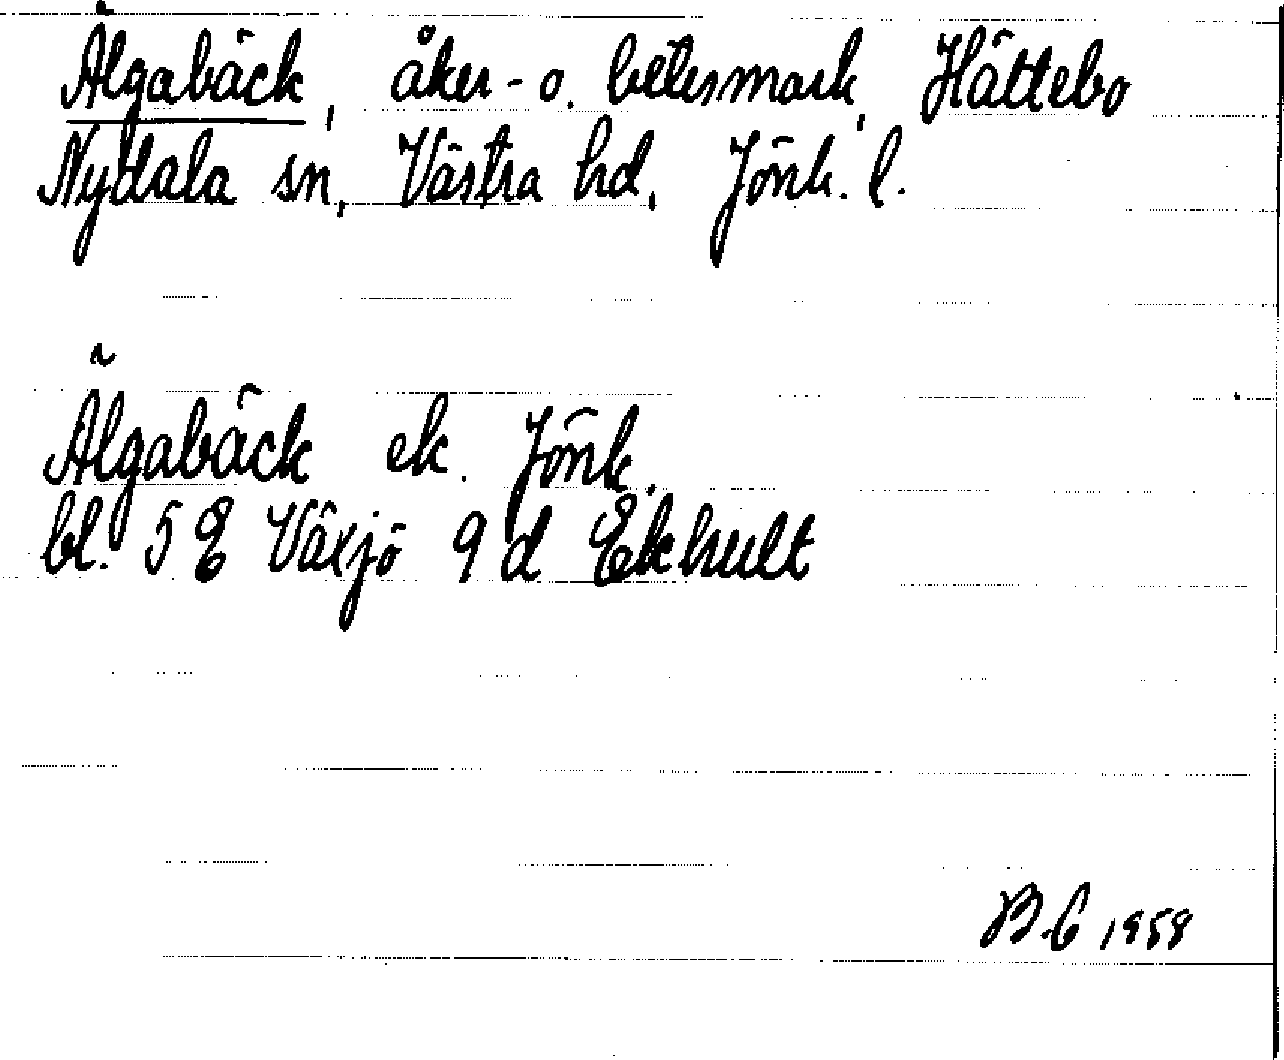 Älgabäck, åker- o. betesmark, Hättebo
Nydala sn, Västra hd, Jönk. l.
Älgabäck ek. Jönk.
bl. 5 E Växjö 9 d Ekhult
B.C 1958